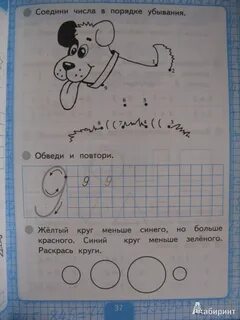 Соедини числа в порядке убывания.
Обведи и повтори.
9 9 9
Жёлтый круг меньше синего, но больше
красного. Синий круг меньше зелёного.
Раскрась круги.
37
Лабиринт